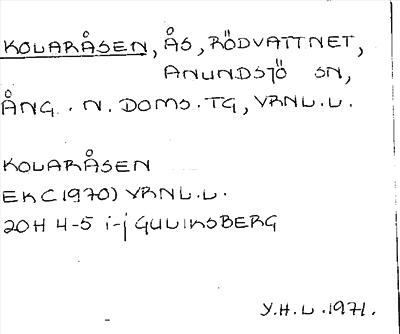 KOLARÅSEN, ÅS, RÖDVATTNET,
ANUNDSJÖ SN,
ÅNG. N. DOMS. TG, VRNL.L.
KOLARÅSEN
EKC(1970) VRNL.L.
20H 4-5 i-j GULIKSBERG
Y.H.L. 1971.